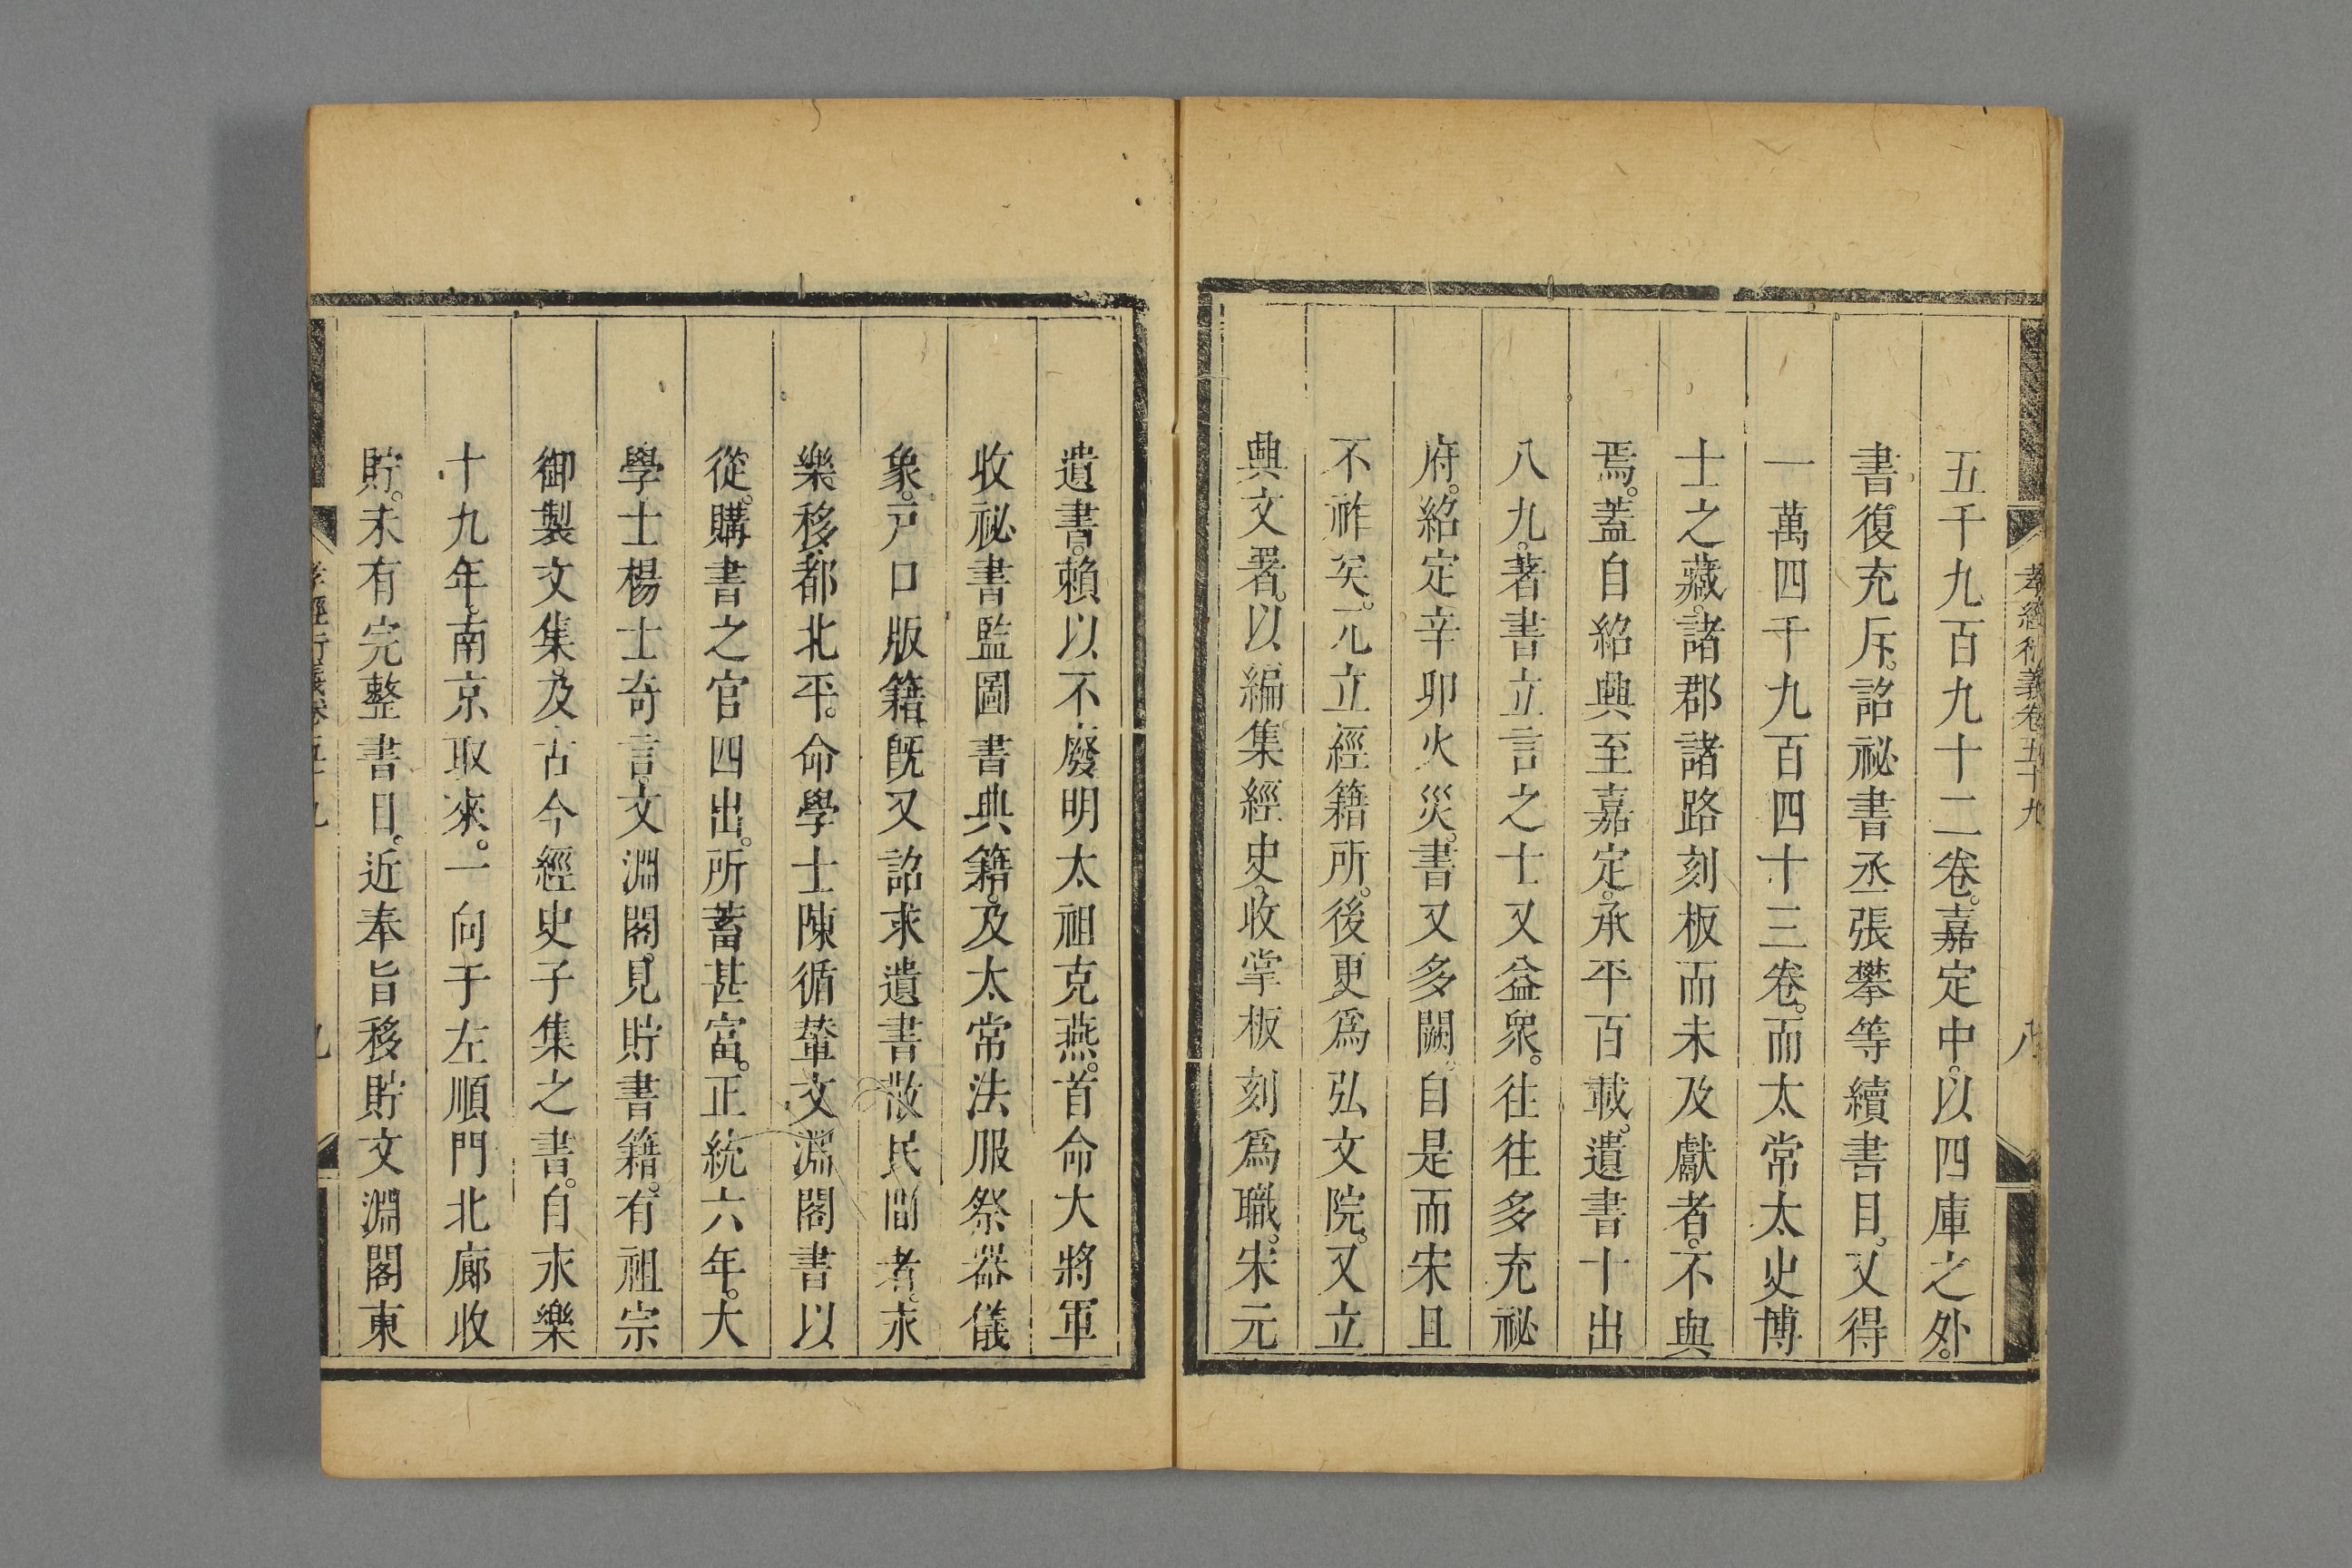 孝經衍義卷五十九
八
五千九百九十二卷。嘉定中。以四庫之外。
書復充斥。詔祕書丞張攀等續書目。又得
一萬四千九百四十三卷。而太常太史博
士之藏。諸郡諸路刻板而未及獻者。不與
焉。蓋自紹興至嘉定。承平百載。遺書十出
八九。著書立言之士又益衆。往往多充祕
府。紹定辛卯火災。書又多闕。自是而宋且
不祚矣。元立經籍所。後更爲弘文院。又立
興文署。以編集經史。收掌板刻爲職。宋元
遺書。賴以不廢明太祖克燕。首命大將軍
收祕書監圖書典籍。及太常法服祭器儀
象。戸口版籍。旣又詔求遺書散民間者。永
樂移都北平。命學士陳循輦文淵閣書以
從。購書之官四出。所蓄甚富。正統六年。大
學士楊士奇言。文淵閣。見貯書籍。有祖宗
御製文集。及古今經史子集之書。自永樂
十九年。南京取來。一向于左順門北廊收
貯。未有完整書目。近奉旨移貯文淵閣東
孝經衍義卷五十九
九